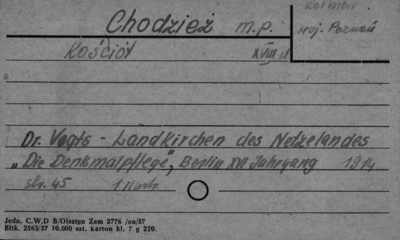 Chodzież m.p.
Kolmar
woj. Poznań
Kościół XVIII w
Dr. Vogts - Landkirchen des Netzelandes
„Die Denkmalpflege", Berlin XVI Jahrgang 1914
str. 45 1 ilustr.
Jedn. C.W.D B/Olsztyn Zam 2776 /aa/57
Bltk. 2563/57 10.000 szt. karton kl. 7 g 220.